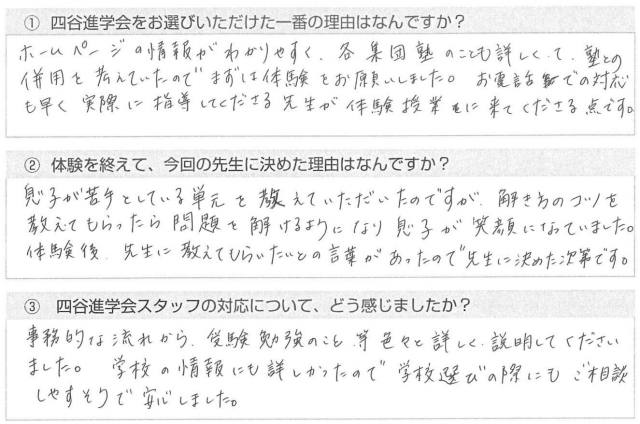 ① 四谷進学会をお選びいただけた一番の理由はなんですか？
ホームページの情報がわかりやすく、各集団塾のことも詳しくて、塾との
併用を考えていたのでまずは体験をお願いしました。お電話での対応
も早く実際に指導してくださる先生が体験授業に来てくださる点です。
② 体験を終えて、今回の先生に決めた理由はなんですか？
息子が苦手としている単元を教えていただいたのですが、解き方のコツを
教えてもらったら問題を解けるようになり息子が笑顔になっていました。
体験後、先生に教えてもらいたいとの言葉があったので先生に決めた次第です。
③ 四谷進学会スタッフの対応について、どう感じましたか？
事務的な流れから、受験勉強のこと等色々と詳しく説明してください
ました。学校の情報にも詳しかったので学校選びの際にもご相談
しやすそうで安心しました。